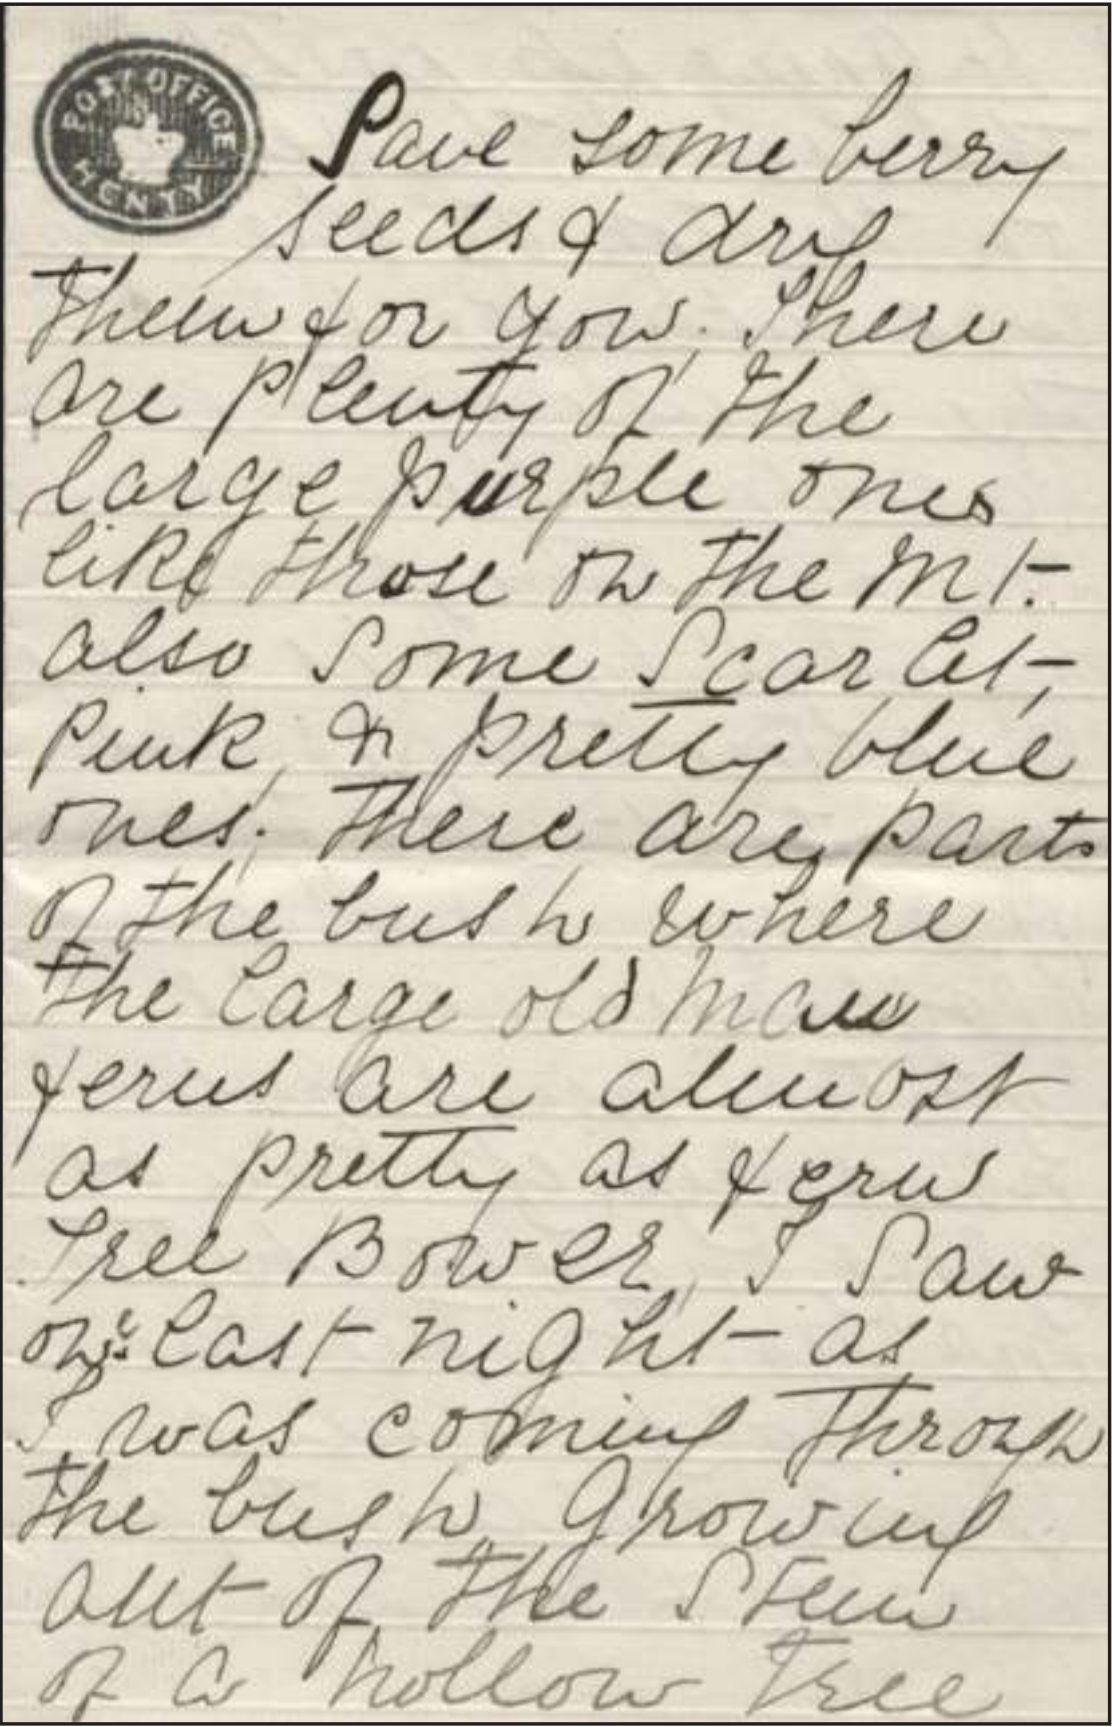 POST OFFICE
HENTY
Save some berry
seeds & dry
them for you. There
are plenty of the
large purple ones
like those on the Mt.
also some Scarlet,
Pink, & pretty blue
ones. There are parts
of the bush where
the large old man
ferns are almost
as pretty as fern
Tree Bower, I saw
one last night as
I was coming through
the bush growing
out of the stem
of a hollow tree